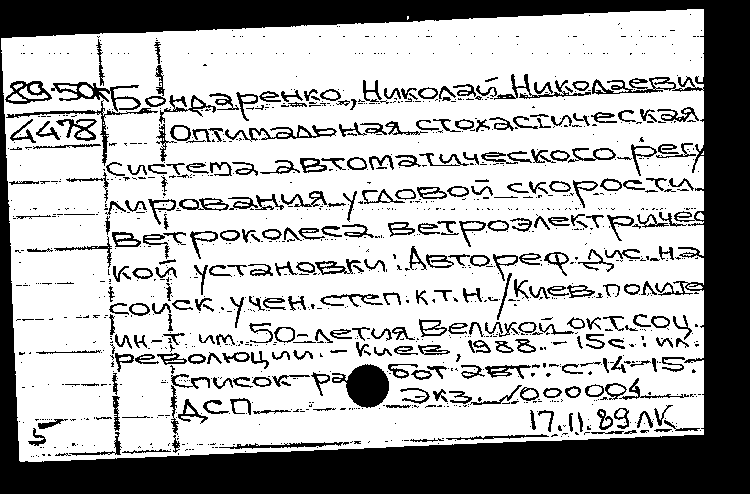 89-50к Бондаренко, Николай Николаевич
4478 Оптимальная стохастическая
система автоматического регу
лирования угловой скорости
ветроколеса ветроэлектричес
кой установки: Автореф. дис. на
соиск. учен. степ. к.т.н. / Киев. полите
ин-т им. 50-летия Великой окт. соц.
революции. - Киев, 1988. - 15 с.: ил.
Список работ авт.: с. 14-15.
ДСП Экз. N000004.
5 17.11.89 ЛК